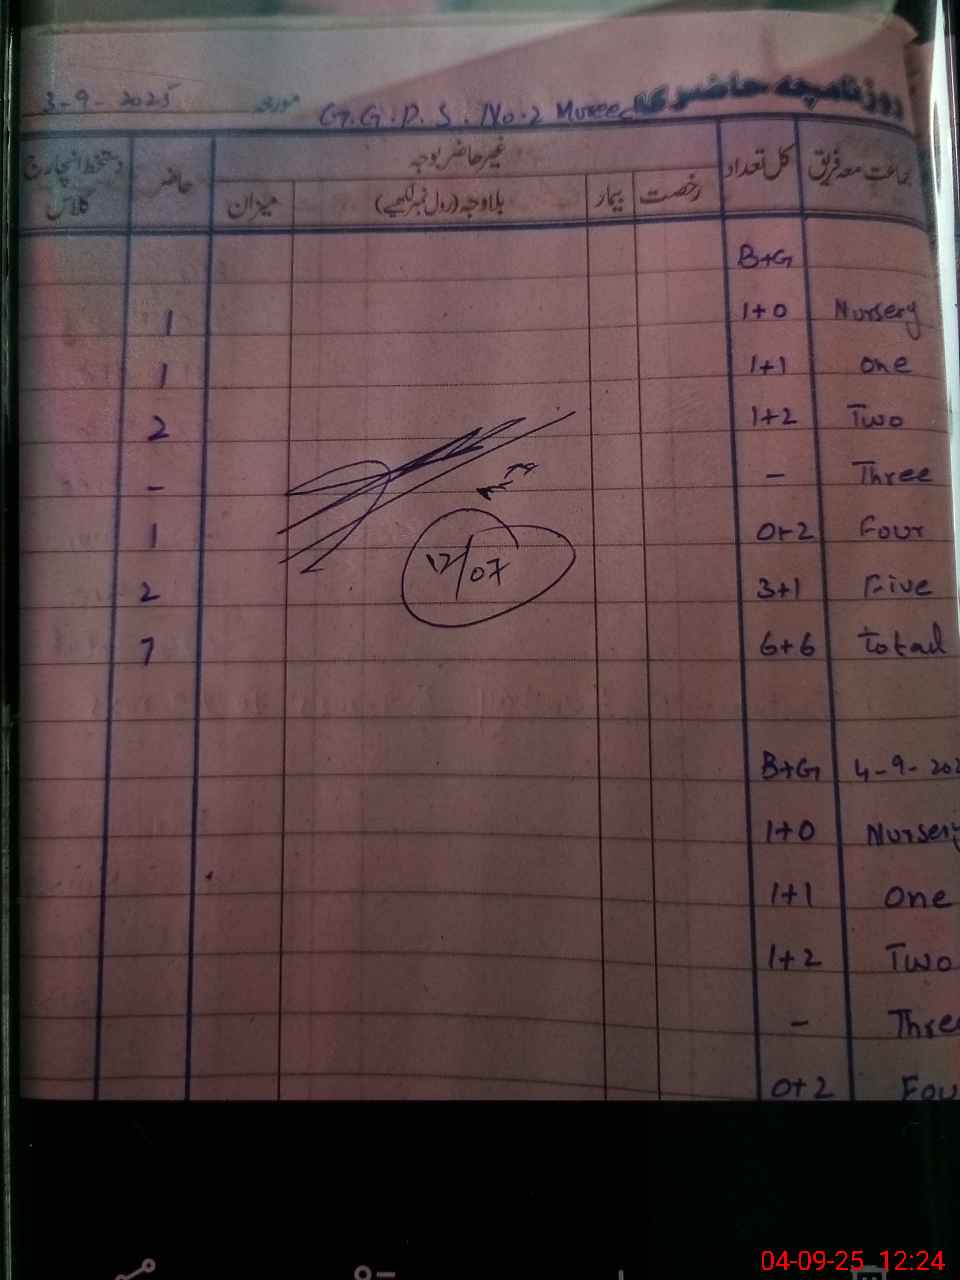 روزنامچہ حاضری G.G.P.S. No.2 مورخہ 3-9-2025
جماعت معہ فریق کل تعداد غیر حاضر بوجہ حاضر دستخط انچارج کلاس
رخصت بیمار بلاوجہ (رول نمبر لکھیے) میزان
B+G
Nursery 1+0 1
One 1+1 1
Two 1+2 2
Three - -
Four 0+2 1
Five 3+1 2
Total 6+6 7
12/07
4-9-202 B+G
Nursery 1+0
One 1+1
Two 1+2
Three -
Fou 0+2
04-09-25 12:24